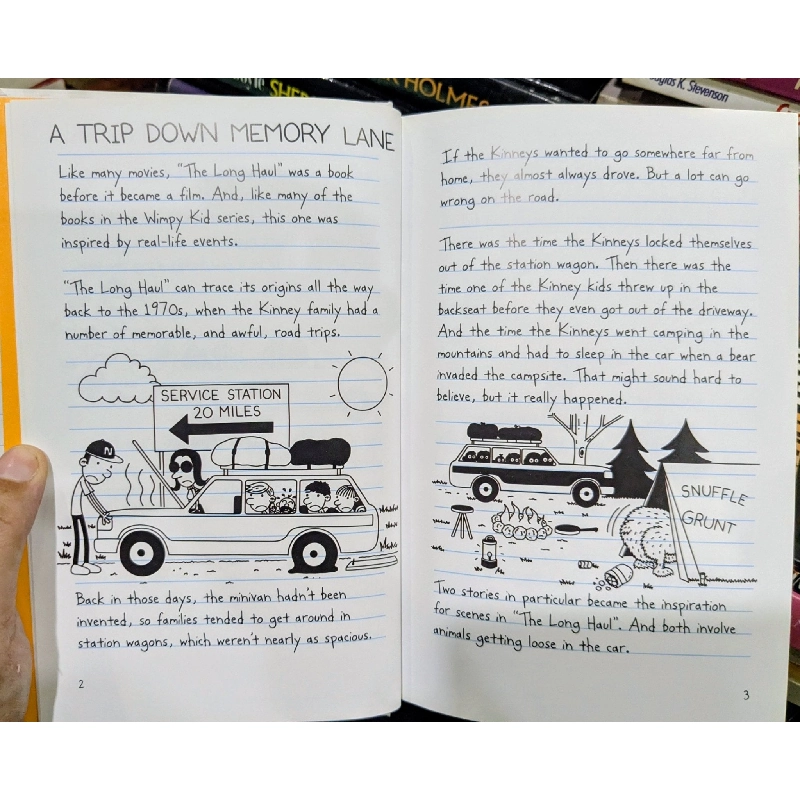 SHER
K HOLMES
Douglas K. Stevenson
A TRIP DOWN MEMORY LANE
Like many movies, "The Long Haul" was a book
before it became a film. And, like many of the
books in the Wimpy Kid series, this one was
inspired by real-life events.
"The Long Haul" can trace its origins all the way
back to the 1970s, when the Kinney family had a
number of memorable, and awful, road trips.
SERVICE STATION
20 MILES
N
Back in those days, the minivan hadn't been
invented, so families tended to get around in
station wagons, which weren't nearly as spacious.
2
If the Kinneys wanted to go somewhere far from
home, they almost always drove. But a lot can go
wrong on the road.
There was the time the Kinneys locked themselves
out of the station wagon. Then there was the
time one of the Kinney kids threw up in the
backseat before they even got out of the driveway.
And the time the Kinneys went camping in the
mountains and had to sleep in the car when a bear
invaded the campsite. That might sound hard to
believe, but it really happened.
SNUFFLE
GRUNT
Two stories in particular became the inspiration
for scenes in "The Long Haul". And both involve
animals getting loose in the car.
3